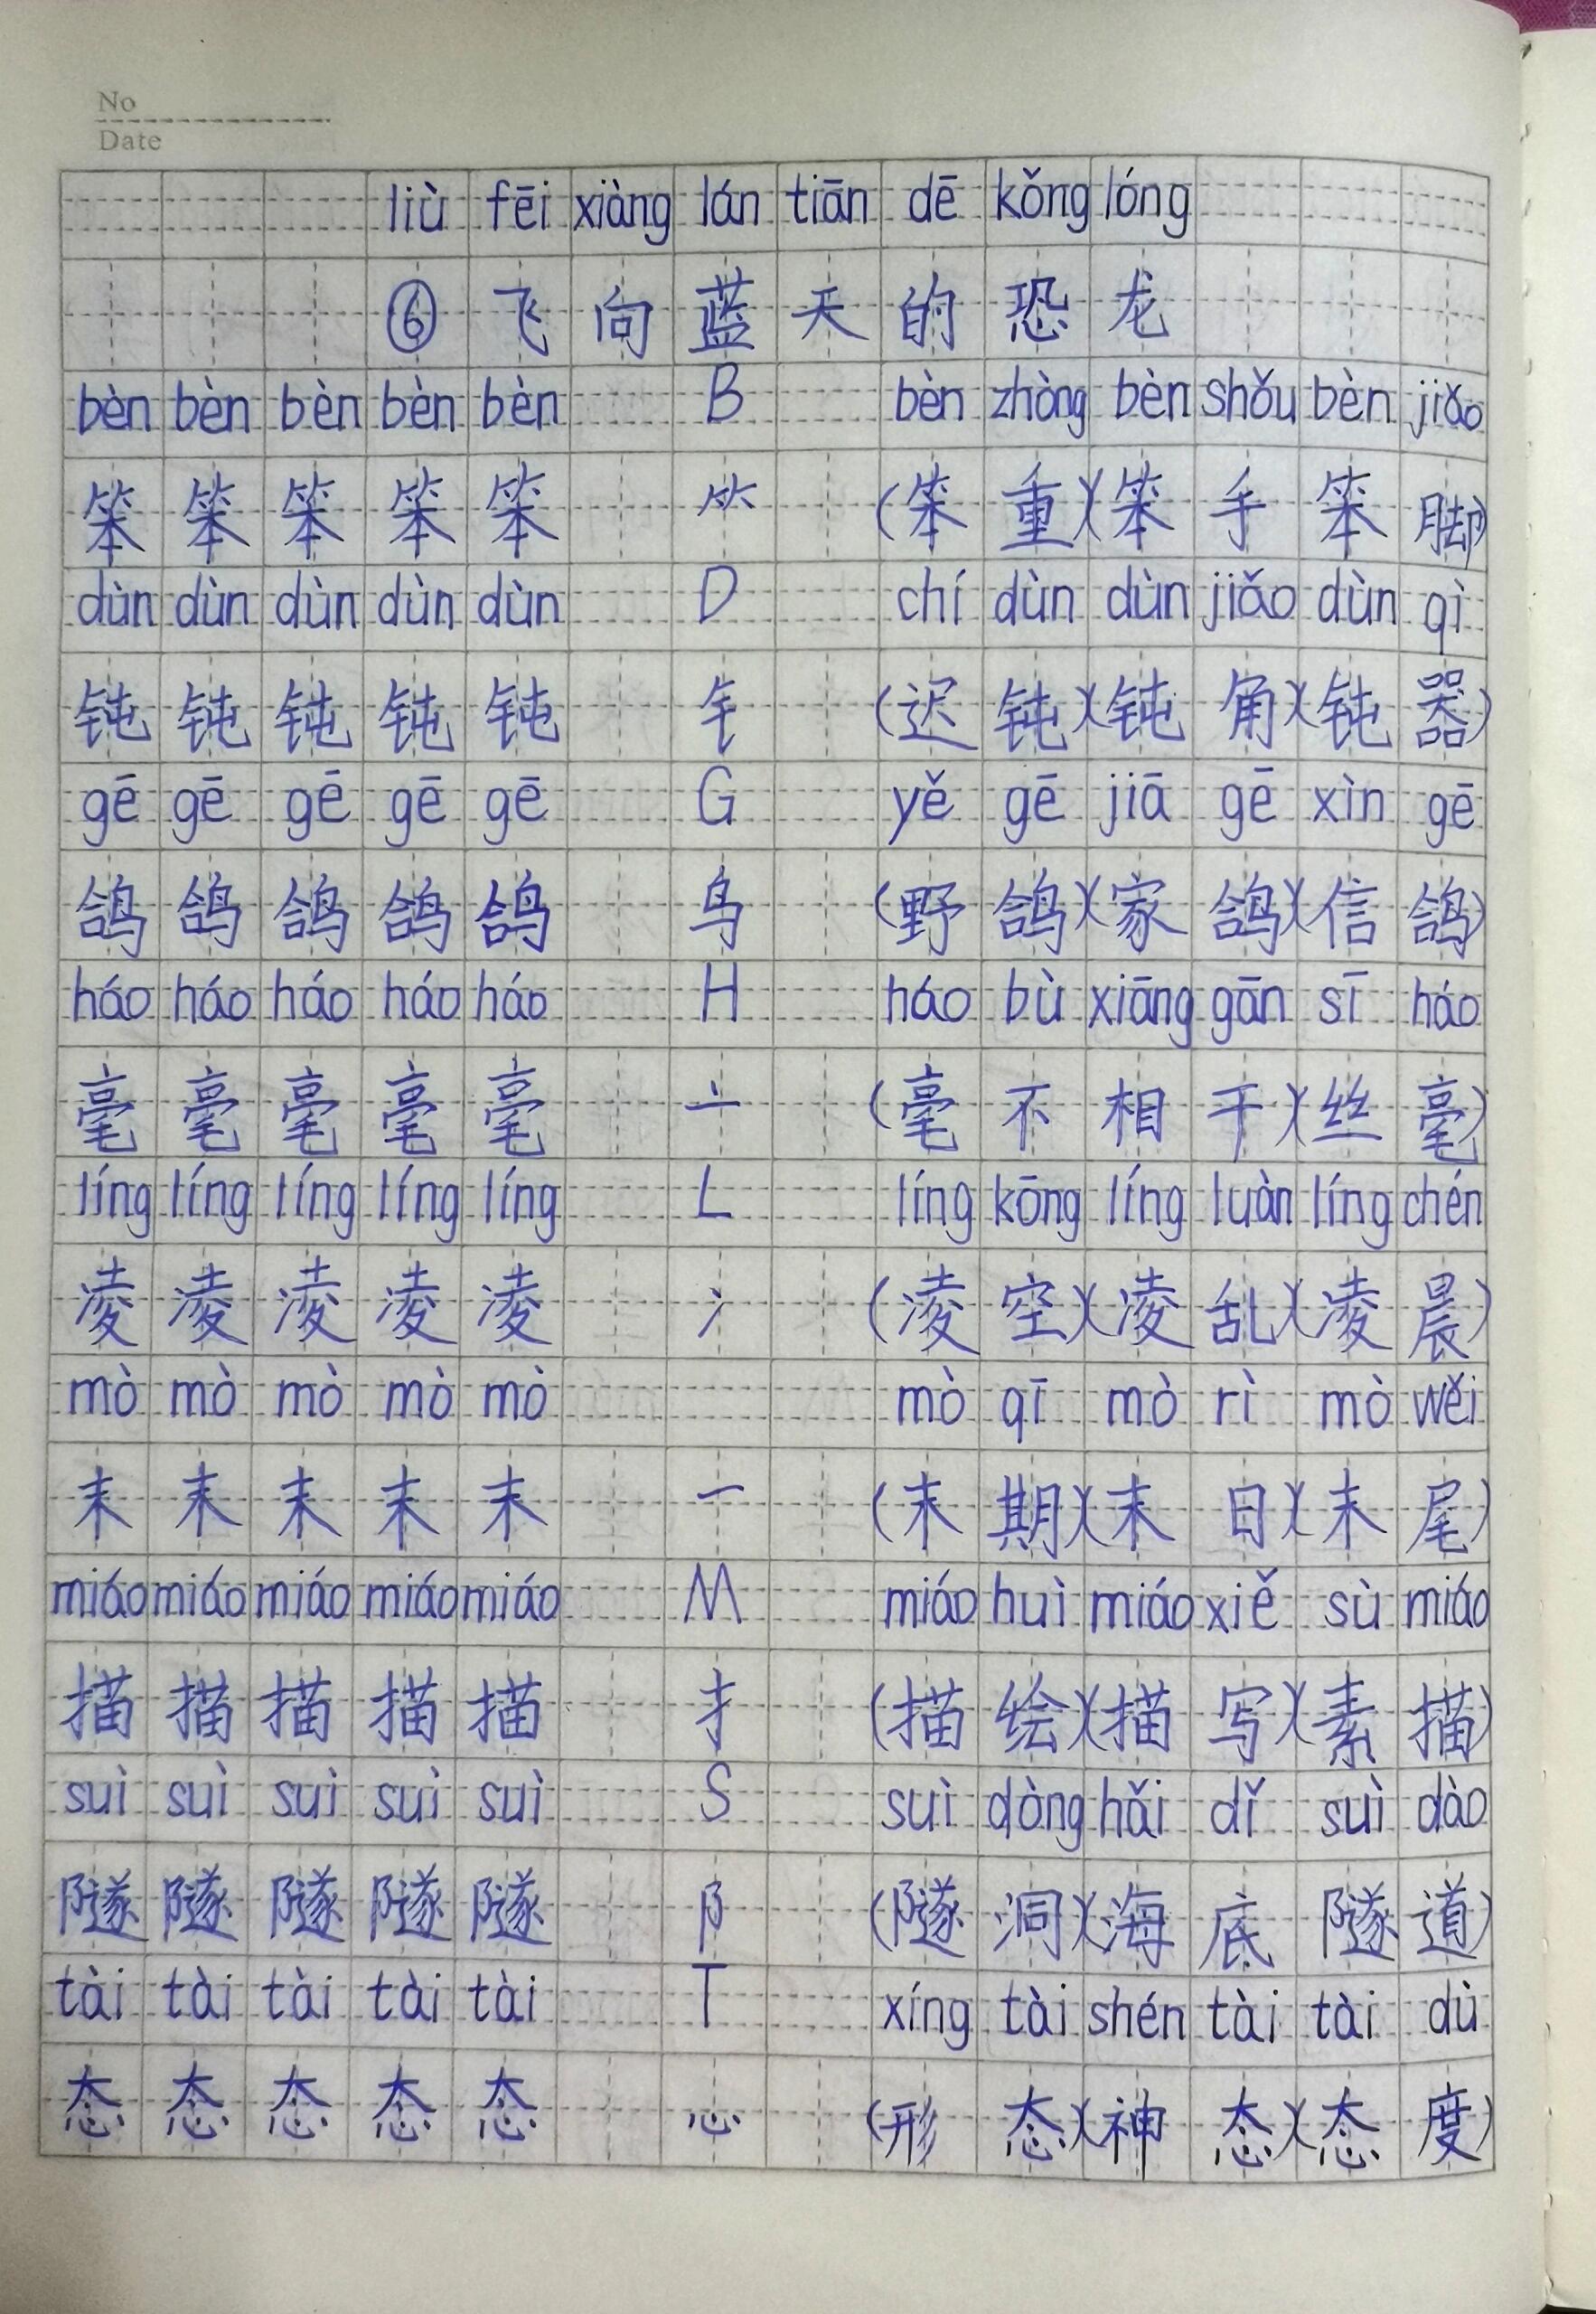 No
Date
liù fēi xiàng lán tiān dē kǒng lóng
⑥ 飞 向 蓝 天 的 恐 龙
bèn bèn bèn bèn bèn B bèn zhòng bèn shǒu bèn jiǎo
笨 笨 笨 笨 笨 ⺮ (笨 重)(笨 手 笨 脚)
dùn dùn dùn dùn dùn D chí dùn dùn jiǎo dùn qì
钝 钝 钝 钝 钝 钅 (迟 钝)(钝 角)(钝 器)
gē gē gē gē gē G yě gē jiā gē xìn gē
鸽 鸽 鸽 鸽 鸽 鸟 (野 鸽)(家 鸽)(信 鸽)
háo háo háo háo háo H háo bù xiāng gān sī háo
毫 毫 毫 毫 毫 亠 (毫 不 相 干)(丝 毫)
líng líng líng líng líng L líng kōng líng luàn líng chén
凌 凌 凌 凌 凌 冫 (凌 空)(凌 乱)(凌 晨)
mò mò mò mò mò mò qī mò rì mò wěi
末 末 末 末 末 一 (末 期)(末 日)(末 尾)
miáo miáo miáo miáo miáo M miáo huì miáo xiě sù miáo
描 描 描 描 描 扌 (描 绘)(描 写)(素 描)
suì suì suì suì suì S suì dòng hǎi dǐ suì dào
隧 隧 隧 隧 隧 阝 (隧 洞)(海 底 隧 道)
tài tài tài tài tài T xíng tài shén tài tài dù
态 态 态 态 态 心 (形 态)(神 态)(态 度)